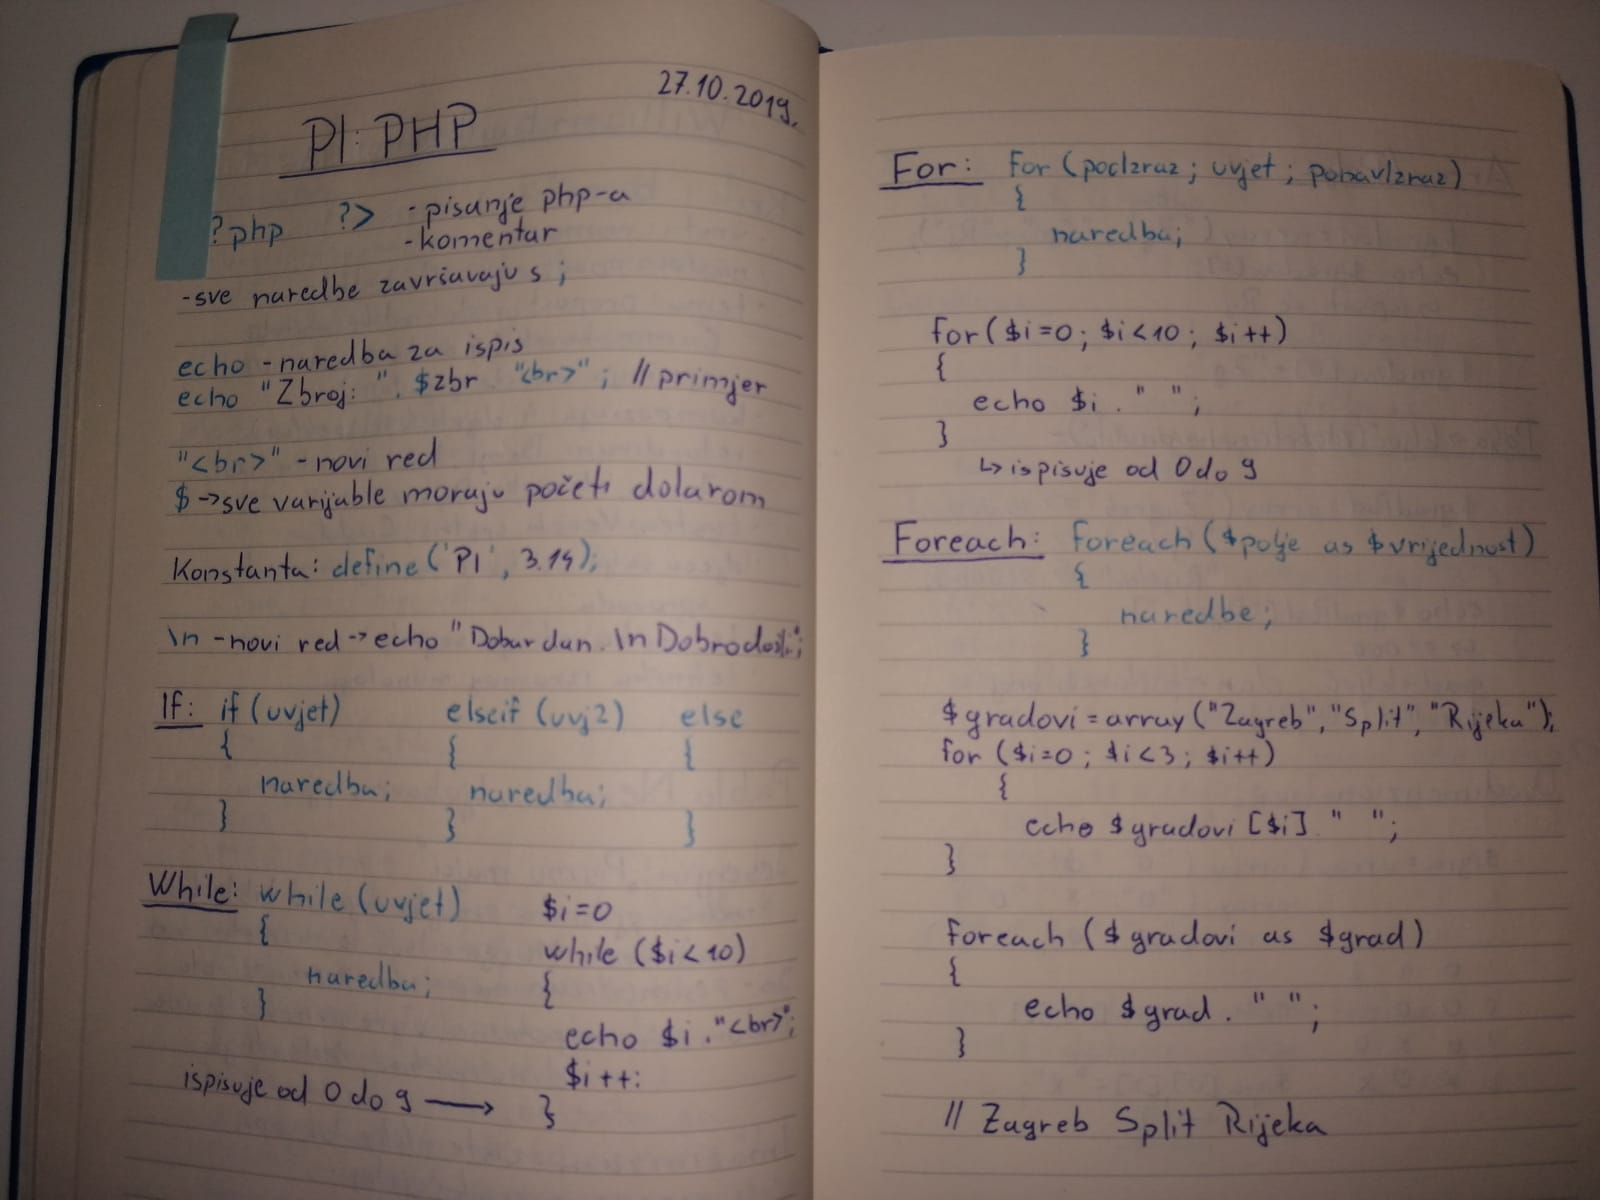 27.10.2019.
PI: PHP
?php ?> -pisanje php-a
-komentar
-sve naredbe završavaju s ;
echo -naredba za ispis
echo "Zbroj: ". $zbr "<br>"; // primjer
"<br>" -novi red
$ →sve varijable moraju početi dolarom
Konstanta: define('PI', 3.14);
\n -novi red → echo "Dobar dan. \n Dobrodošli";
If: if (uvjet) elseif (uvj2) else
{ { {
naredba; naredba;
} } }
While: while (uvjet)
{
naredba;
}
$i=0
while ($i<10)
{
echo $i."<br>";
$i++;
}
ispisuje od 0 do 9 →
For: for (počIzraz; uvjet; ponavIzraz)
{
naredba;
}
for ($i=0; $i<10; $i++)
{
echo $i . " ";
}
↳ ispisuje od 0 do 9
Foreach: foreach ($polje as $vrijednost)
{
naredbe;
}
$gradovi = array ("Zagreb", "Split", "Rijeka");
for ($i=0; $i<3; $i++)
{
echo $gradovi [$i] " ";
}
foreach ($gradovi as $grad)
{
echo $grad . " ";
}
// Zagreb Split Rijeka